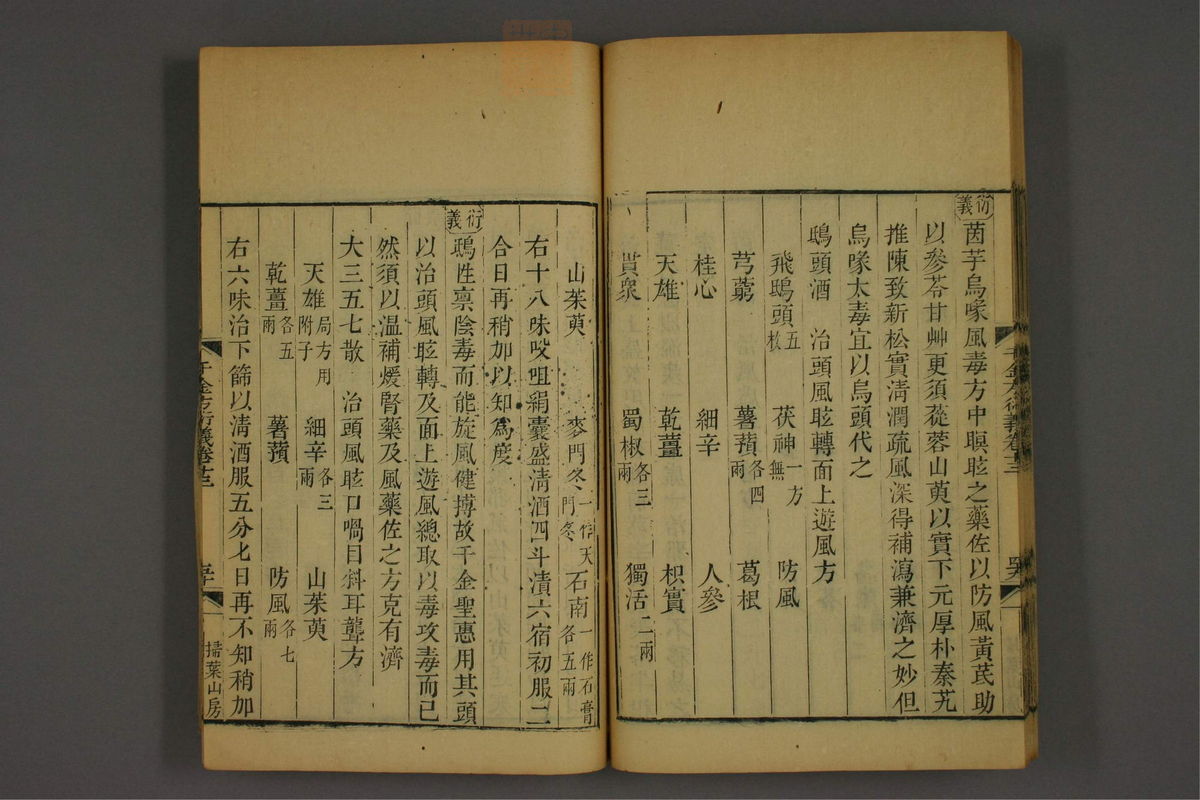 衍義
茵芋烏喙風毒方中瞑眩之藥佐以防風黃芪助
以參苓甘艸更須蓯蓉山萸以實下元厚朴秦艽
推陳致新松實淸潤疏風深得補瀉兼濟之妙但
烏喙太毒宜以烏頭代之
鴟頭酒 治頭風眩轉面上遊風方
飛鴟頭五枚 茯神一方無 防風
芎藭 薯蕷各四兩 葛根
桂心 細辛 人參
天雄 乾薑 枳實
貫衆 蜀椒各三兩 獨活二兩
山茱萸 麥門冬一作天門冬 石南一作石膏各五兩
右十八味㕮咀絹囊盛淸酒四斗漬六宿初服二
合日再稍加以知爲度
衍義
鴟性禀陰毒而能旋風健搏故千金聖惠用其頭
以治頭風眩轉及面上遊風總取以毒攻毒而已
然須以温補煖腎藥及風藥佐之方克有濟
大三五七散 治頭風眩口喎目斜耳聾方
天雄局方用附子 細辛各三兩 山茱萸
乾薑各五兩 薯蕷 防風各七兩
右六味治下篩以淸酒服五分七日再不知稍加
千金方衍義卷十三
掃葉山房